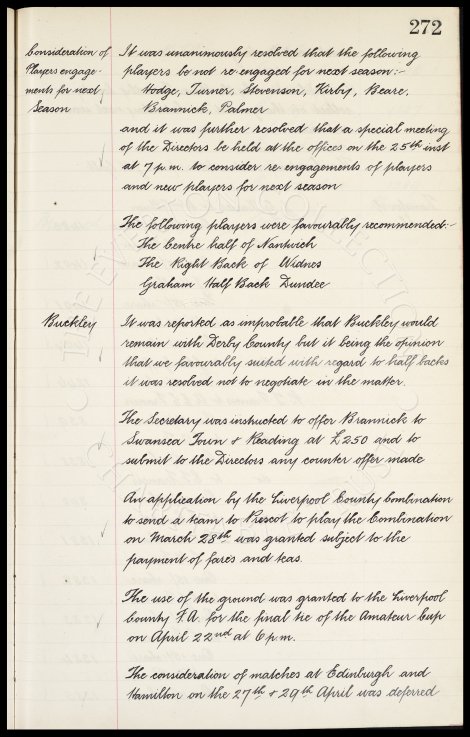 272
Consideration of
Players engage-
ments for next
Season
It was unanimously resolved that the following
players be not re-engaged for next season:-
Hodge, Turner, Stevenson, Kirby, Beare,
Brannick, Palmer
and it was further resolved that a special meeting
of the Directors be held at the offices on the 25th inst
at 7 p.m. to consider re-engagements of players
and new players for next season
The following players were favourably recommended:-
The Centre half of Nantwich
The Right Back of Widnes
Graham Half Back Dundee
Buckley
It was reported as improbable that Buckley would
remain with Derby County but it being the opinion
that we favourally suited with regard to half backs
it was resolved not to negotiate in the matter.
The Secretary was instructed to offer Brannick to
Swansea Town & Reading at £250 and to
submit to the Directors any counter offer made
An application by the Liverpool County Combination
to send a team to Prescot to play the Combination
on March 28th was granted subject to the
payment of fares and teas.
The use of the ground was granted to the Liverpool
County F.A. for the final tie of the Amateur Cup
on April 22nd at 6 p.m.
The consideration of matches at Edinburgh and
Hamilton on the 27th & 29th April was deferred